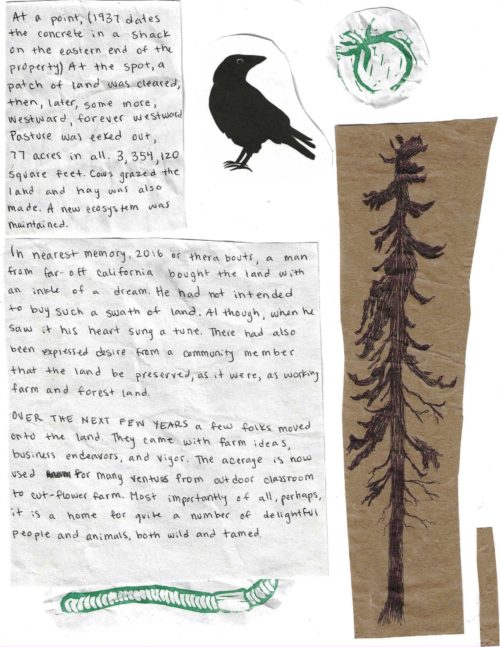 At a point, (1937 dates
the concrete in a shack
on the eastern end of the
property) At the spot, a
patch of land was cleared,
then, later, some more,
westward, forever westward
Pasture was eeked out,
77 acres in all. 3,354,120
square feet. Cows grazed the
land and hay was also
made. A new ecosystem was
maintained.
In nearest memory, 2016 or thera bouts, a man
from far-off California bought the land with
an inkle of a dream. He had not intended
to buy such a swath of land. Al though, when he
saw it his heart sung a tune. There had also
been expressed desire from a community member
that the land be preserved, as it were, as working
farm and forest land.
OVER THE NEXT FEW YEARS a few folks moved
onto the land. They came with farm ideas,
business endeavors, and vigor. The acerage is now
used for many ventures from outdoor classroom
to cut-flower farm. Most importantly of all, perhaps,
it is a home for quite a number of delightful
people and animals, both wild and tamed.